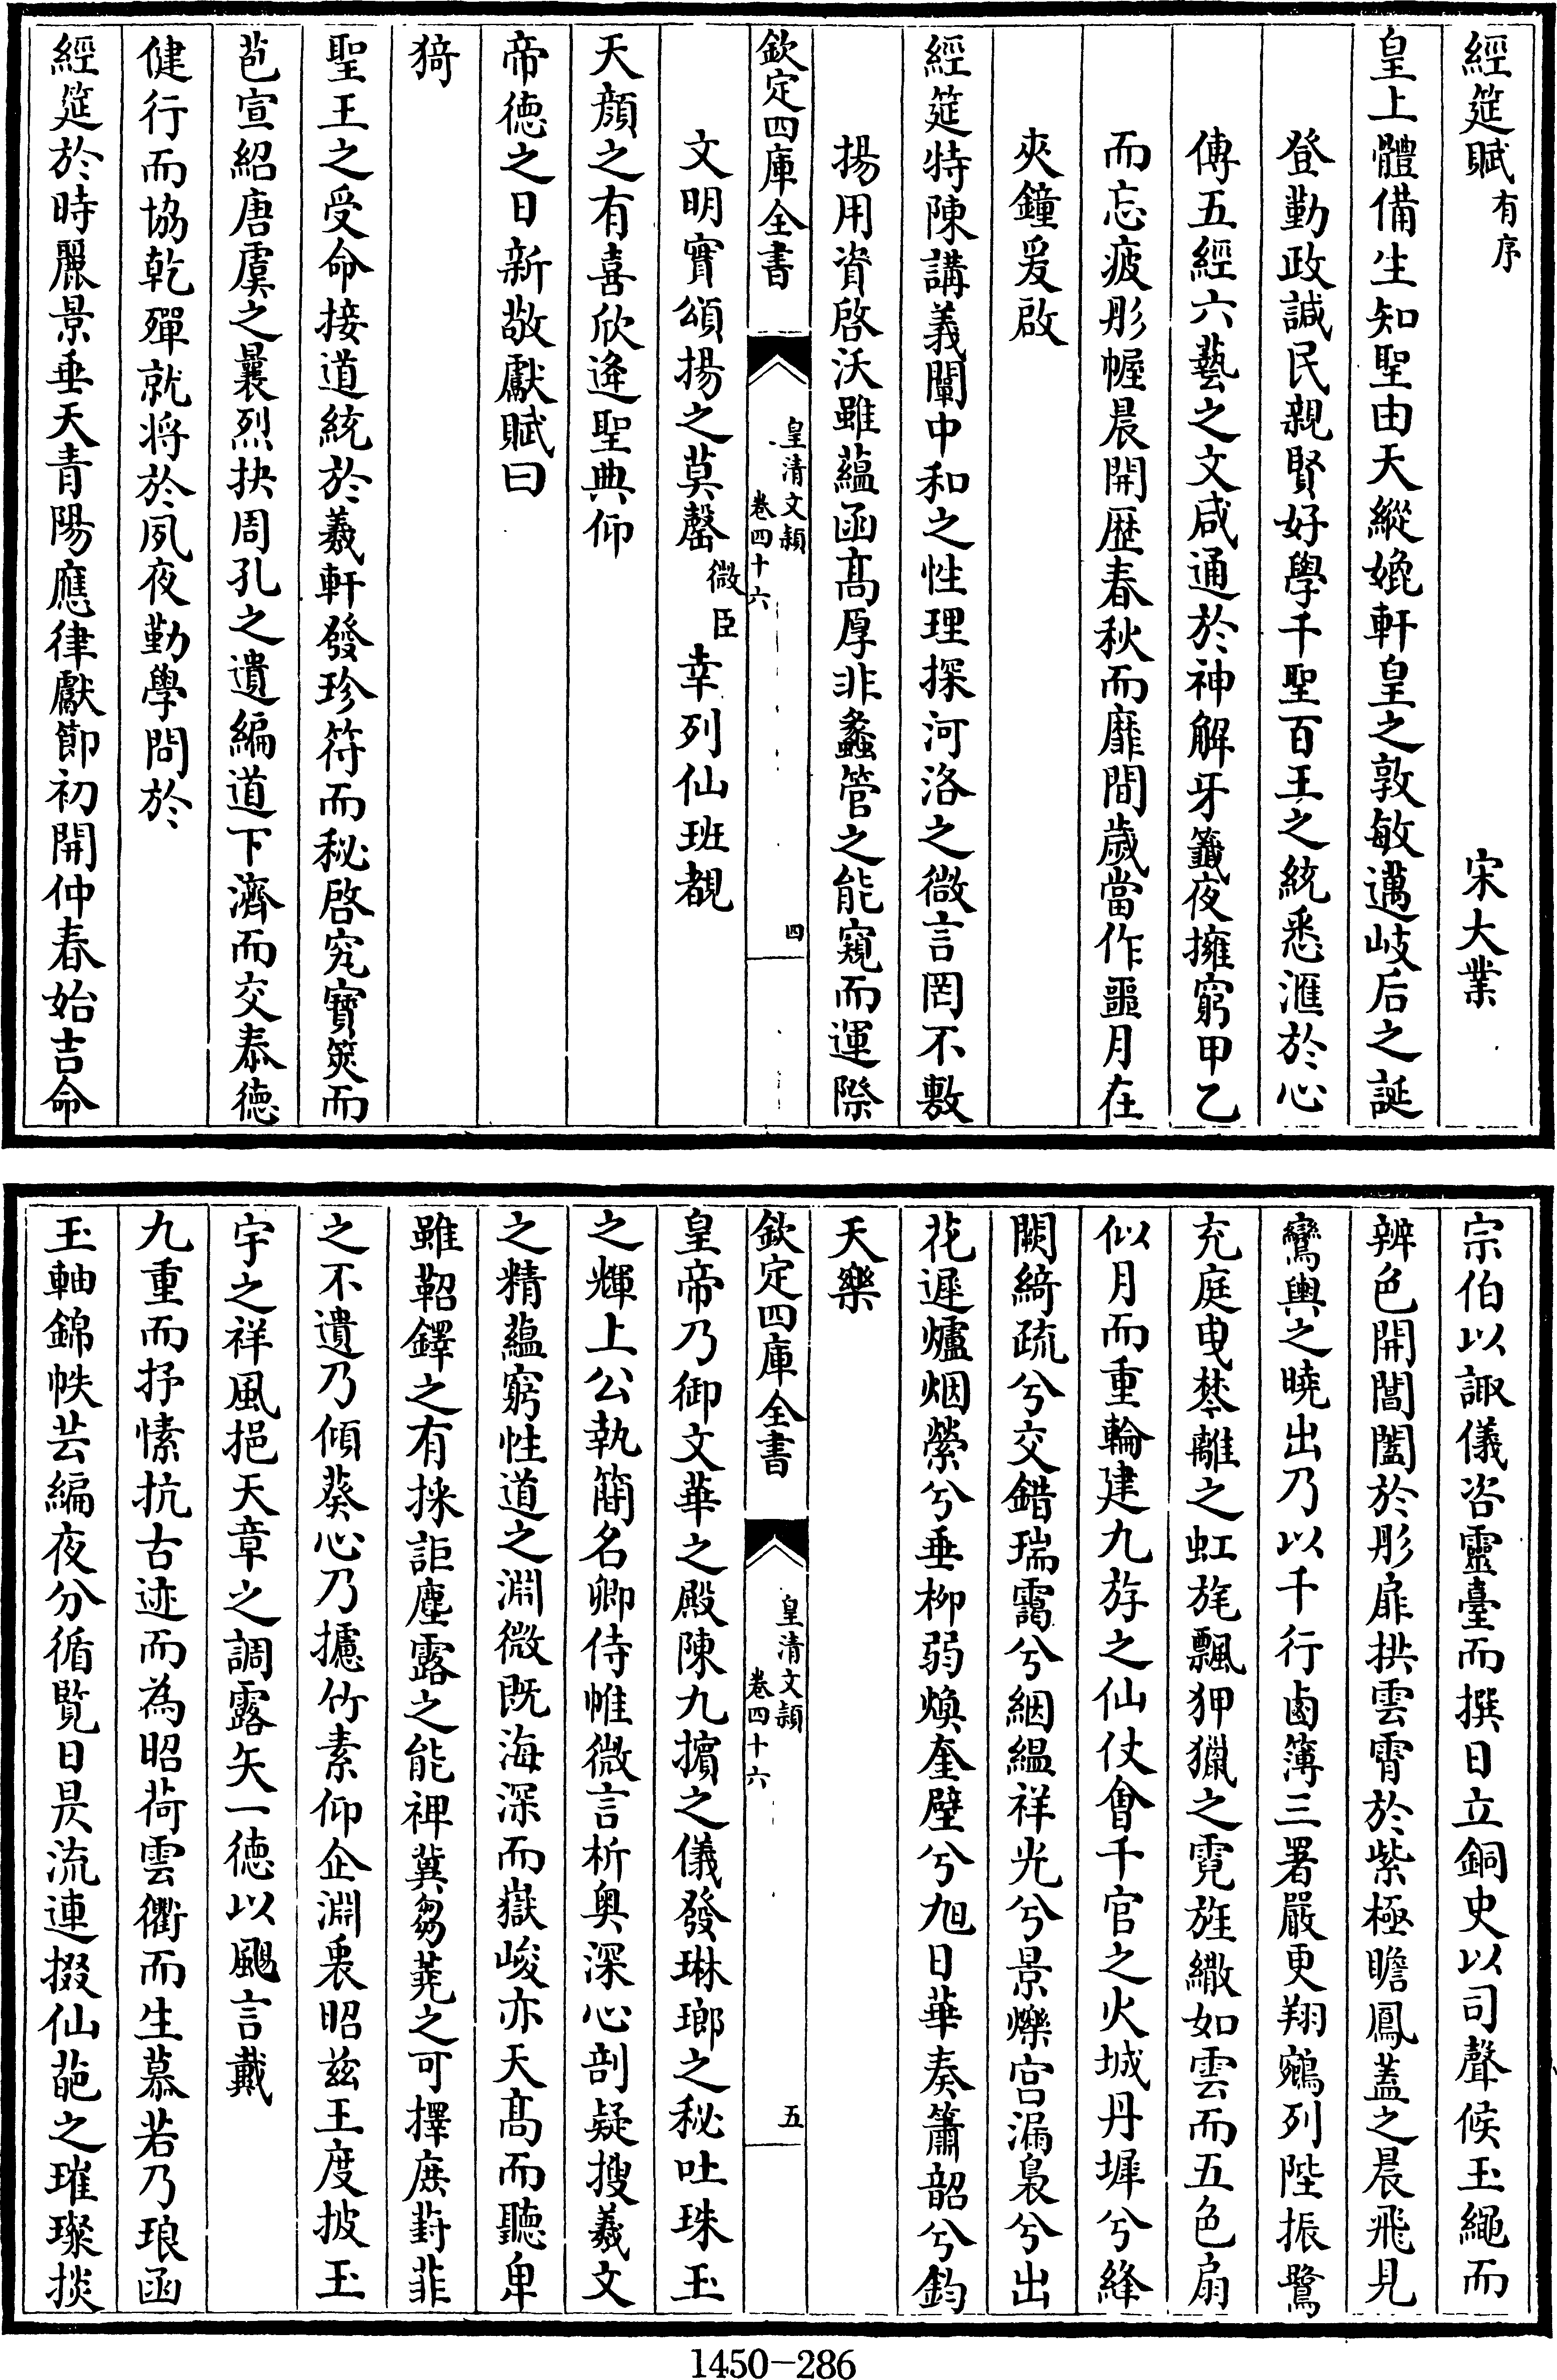 經筵賦有序 宋大業
皇上體備生知聖由天縱娩軒皇之敦敏邁岐后之誕
登勤政諴民親賢好學千聖百王之統悉滙於心
傳五經六藝之文咸通於神解牙籤夜擁窮甲乙
而忘疲彤幄晨開歴春秋而靡間歲當作噩月在
夾鐘爰啟
經筵特陳講義闡中和之性理探河洛之微言罔不敷
揚用資啓沃雖蘊函髙厚非蠡管之能窺而運際
欽定四庫全書 皇清文頴 卷四十六 四
文明實頌揚之莫罄微臣幸列仙班覩
天顔之有喜欣逄聖典仰
帝德之日新敬獻賦曰
猗
聖王之受命接道統於羲軒發珍符而秘啓究寶筴而
苞宣紹唐虞之曩烈抉周孔之遺編道下濟而交泰德
健行而協乾殫就将於夙夜勤學問於
經筵於時麗景垂天青陽應律獻節初開仲春始吉命
宗伯以諏儀咨靈臺而撰日立銅史以司聲候玉繩而
辨色開閶闔於彤扉拱雲霄於紫極瞻鳳蓋之晨飛見
鸞輿之曉出乃以千行鹵簿三署嚴更翔鵷列陛振鷺
充庭曳棽離之虹旄飄狎獵之霓旌繖如雲而五色扇
似月而重輪建九斿之仙仗會千官之火城丹墀兮絳
闕綺疏兮交錯瑞靄兮絪縕祥光兮景爍宫漏裊兮出
花遲爐烟縈兮垂柳弱煥奎壁兮旭日華奏簫韶兮鈞
天樂
欽定四庫全書 皇清文頴 卷四十六 五
皇帝乃御文華之殿陳九擯之儀發琳瑯之秘吐珠玉
之輝上公執簡名卿侍帷微言析奥深心剖疑搜羲文
之精藴窮性道之淵微既海深而嶽峻亦天髙而聽卑
雖鞀鐸之有採詎塵露之能裨冀芻蕘之可擇庶葑菲
之不遺乃傾葵心乃攄竹素仰企淵衷昭兹王度披玉
宇之祥風挹天章之調露矢一德以颺言戴
九重而抒愫抗古迹而為昭荷雲衢而生慕若乃琅函
玉軸錦帙芸編夜分循覧日昃流連掇仙葩之璀璨掞
1450-286